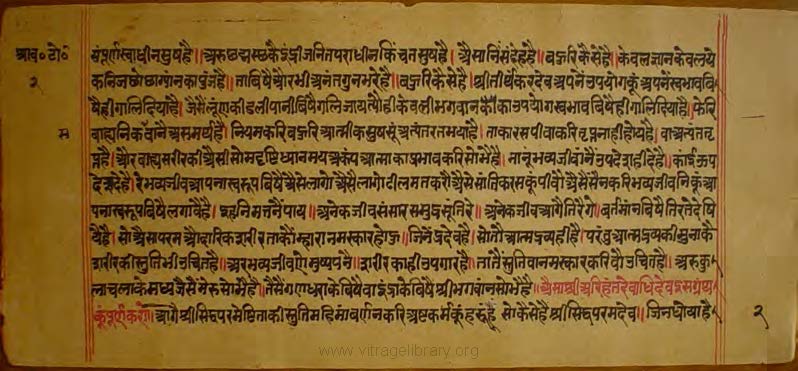 श्राव॰ टी॰
२
संपूर्णस्वाधीनसुषहै॥अरुछद्मस्छकैइंद्रीजनितपराधीनकिंचतसुषहै।अैसानिसंदेहहै॥बहुरिकैसेहै।केवलज्ञानकेवलये
कनिजछोछाग्यानकापुंजहै॥ताबिषैऔरभीअनंतगुनभरेहै॥बहुरिकैसेहै।श्रीतीर्थंकरदेवअपनेउपयोगकूंअपनेस्वभावबि
षैहीगालिदियाहै।जैसैंलूंणकीडलीपानीबिषैगलिजायत्यौंहीकेवलीभगवानकौकाउपयोगस्वभावबिषैहीगालिदियाहै।फेरि
स
बाह्यनिकसवानेअसमर्थहै।नियमकरिबहुरिआत्मीकसुषसूंअत्यंतरतभयाहै।ताकारसपीवाकरितृप्तनाहीहोयहै।वाअत्यंततृ
प्तहै।औरबाह्यसरीरकीअैसीसोमदृष्टिध्यानमयअकंपआत्माकाप्रभावकरिसोभैहै।मानूंभव्यजीवांनैउपदेशहीदेहै।कांईऊप
देशदेहै।रेभव्यजीवआपनास्वरूपबिषैअैसेलागो।अैसैलागोढीलमतकरौअैसेसांतिकरसकूंपीवो।अैसैंसैंनकरिभव्यजीवनिकूंआ
पनास्वरूपबिषैलगावैहै।इहनिमत्तनैपाय॥अनेकजीवसंसारसमुद्रसूंतिरे॥अनेकजीवआगैतिरैगे।बर्तमानबिषैतिरतेदेषि
यैहै।सोअैसापरमऔदारिकशरीरताकोम्हारानमस्कारहोऊ॥जिनेंद्रदेवहै।सोतोआत्मद्रव्यहीहै।परंतुआत्मद्रव्यकीमुताकै
शरीरकीस्तुतिभीउचितहै॥अरभव्यजीवांणैमुष्यपनै॥शरीरकाहीउपगारहै।तातैस्तुतिवानमस्कारकरिवोउचितहै।अरुकु
लाचलाकेमध्यजैसैंमेरुसोभैहै।तैसैंगणधराकेबिषैवाइंद्राकेबिषैश्रीभगवानसोभैहै॥अैसाश्रीअरिहंतदेवाधिदेवइसग्रंथ
कूंपूर्णकरो॥आगैश्रीसिद्धपरमेष्टिताकीस्तुतिमहिमांबर्णनकरिअष्टकर्मकूंहरूंहूं सोकैसेहैश्रीसिद्धपरमदेव॥जिनधोयाहै
२
www.vitragelibrary.org